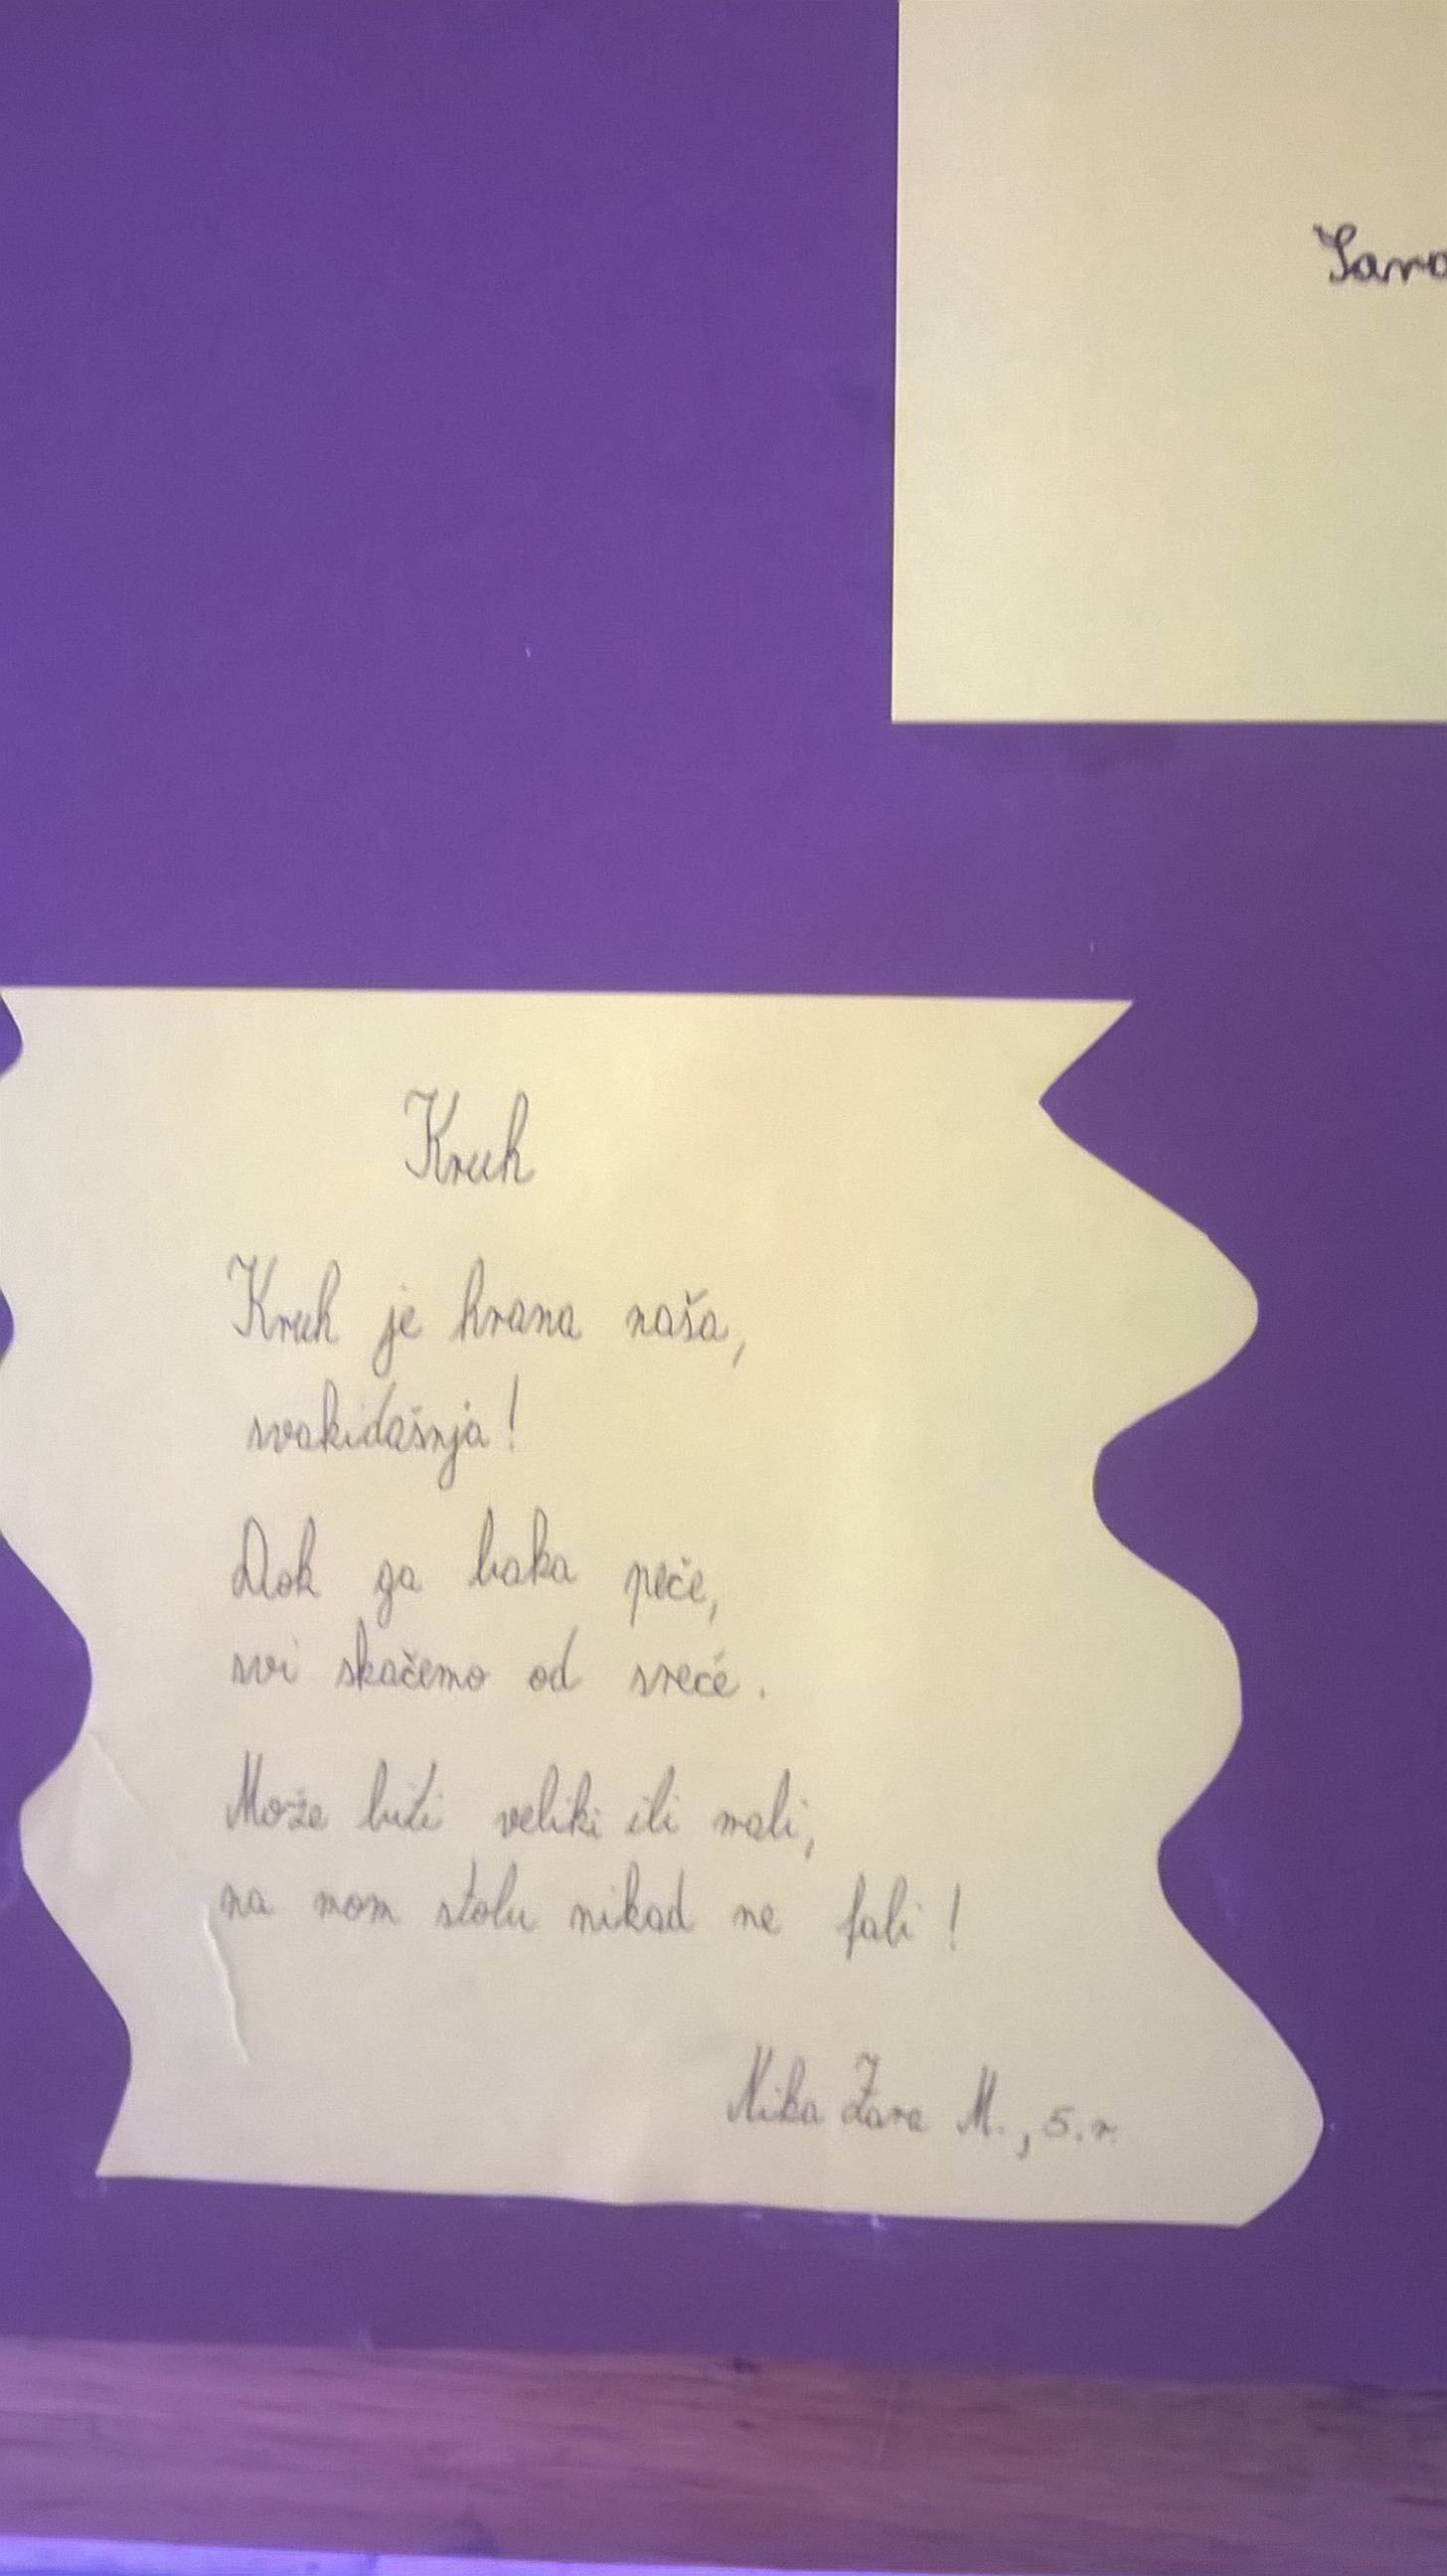 Kruh
Kruh je hrana naša,
svakidašnja!
Dok ga baka peče,
svi skačemo od sreće.
Može biti veliki ili mali,
na mom stolu nikad ne fali!
Nika Zara M., 5.r.